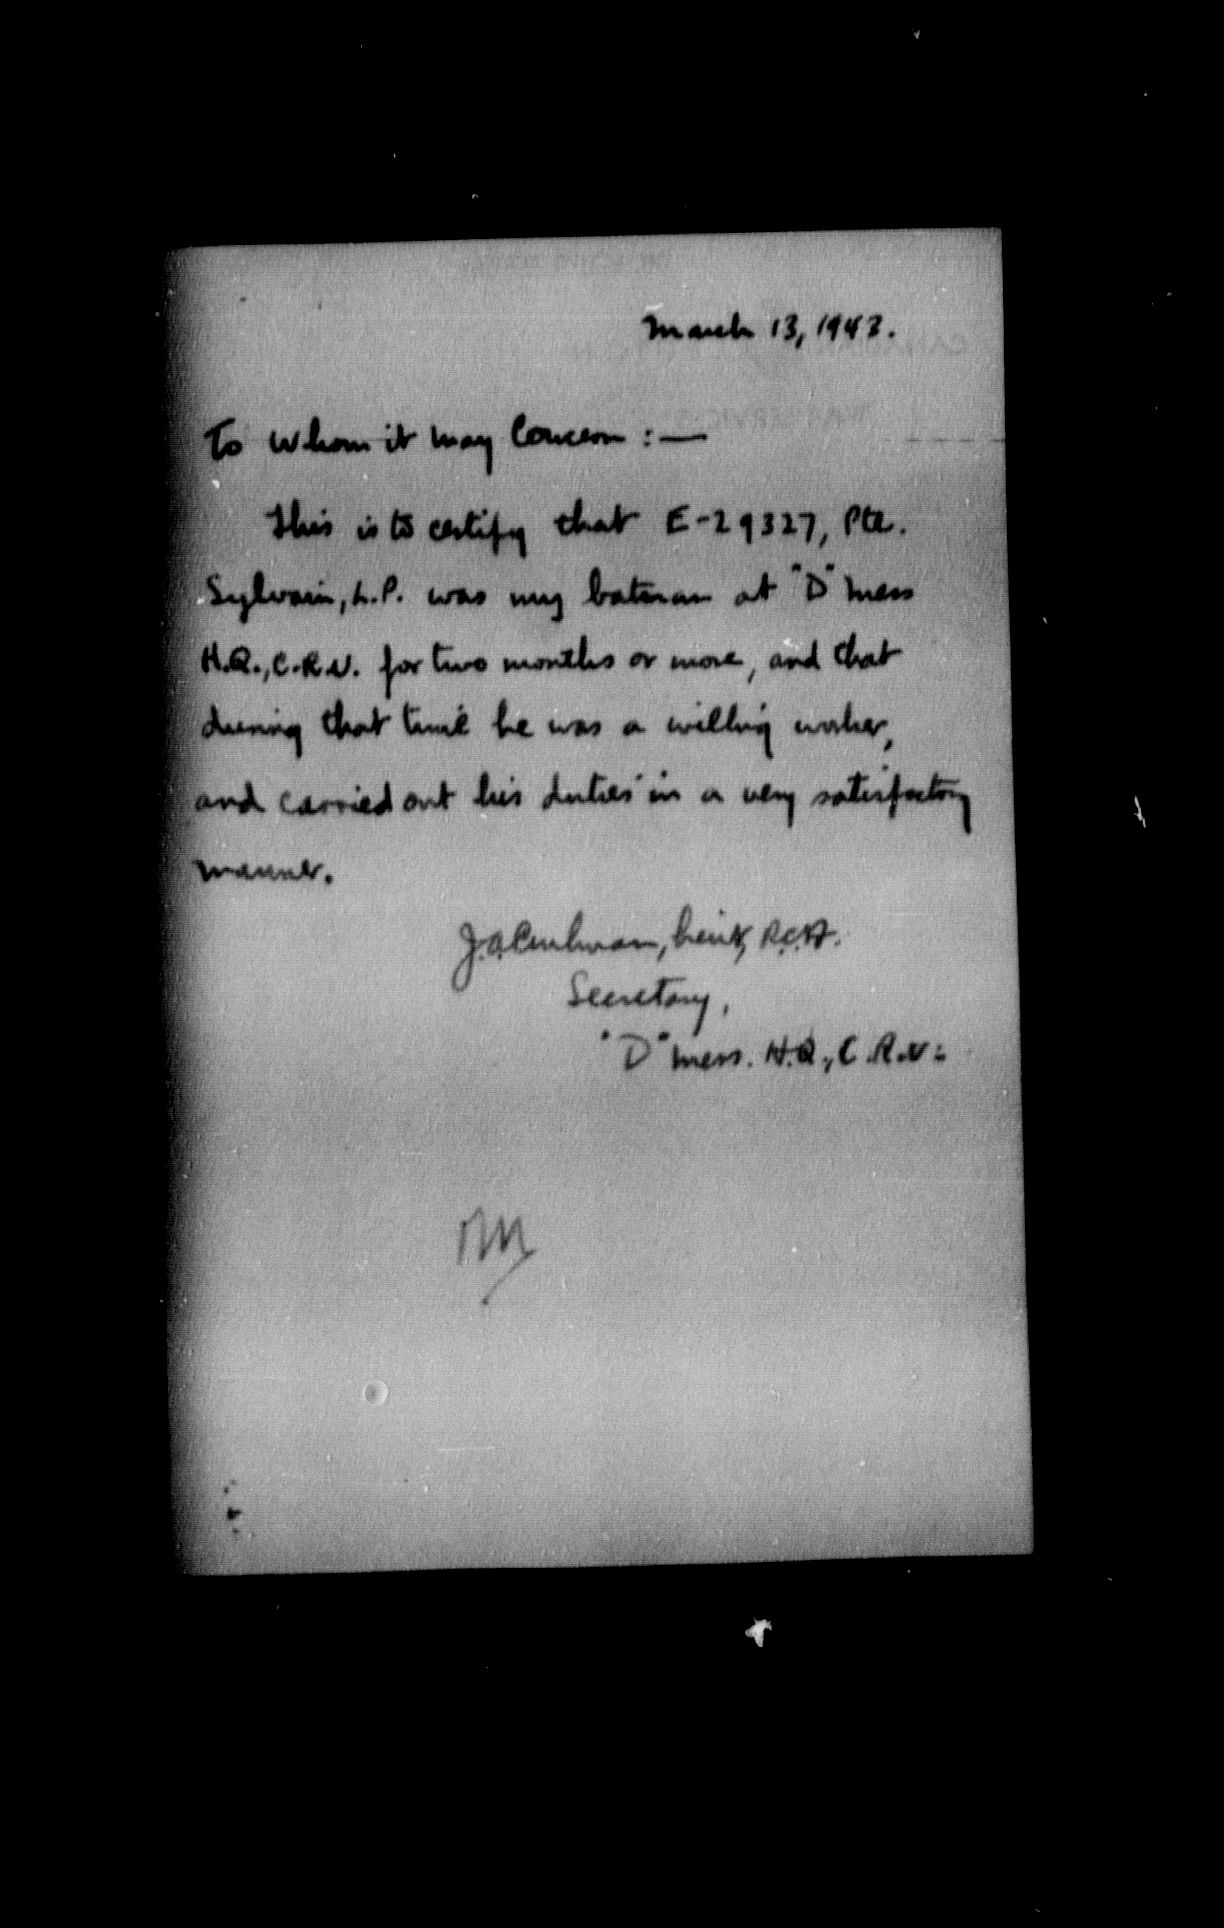 March 13, 1943.
To Whom it May Concern :—
This is to certify that E-29327, Pte.
Sylvain, L.P. was my batman at "D" Mess
H.Q., C.R.U. for two months or more, and that
during that time he was a willing worker,
and carried out his duties in a very satisfactory
manner.
J.A. Lieut, R.C.A.
Secretary,
"D" Mess. H.Q., C.R.U.